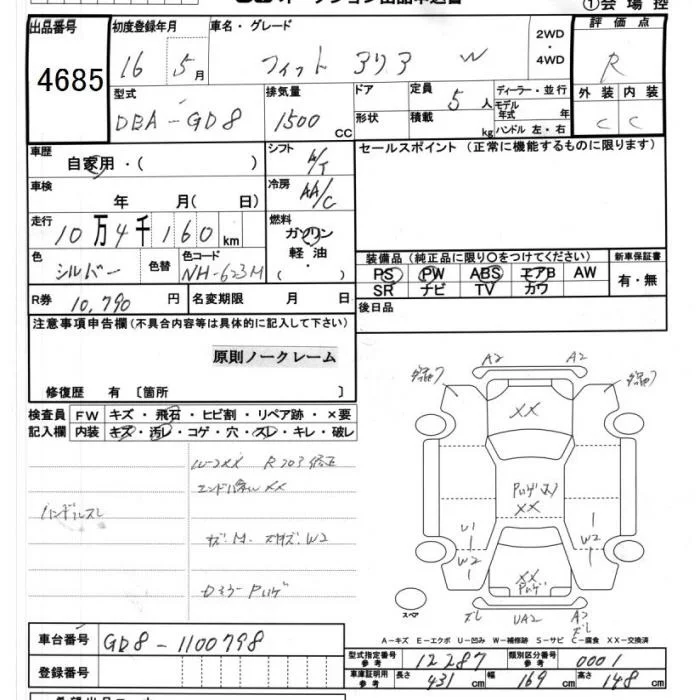 ①会場控
出品番号
4685
初度登録年月
16 5月
車名・グレード
フィット アリア W
2WD
・
4WD
評価点
R
型式
DBA-GD8
排気量
1500 CC
ドア
形状
定員 5人
積載 kg
ディーラー・並行
モデル年式 年
ハンドル 左・右
外装 内装
C C
車歴
自家用・( )
シフト
A/T
セールスポイント (正常に機能するものに限ります)
車検
年 月( 日)
冷房
AA/C
走行
10万4千160km
燃料
ガソリン
軽油
・( )
色
シルバー
色替
色コード
NH-623M
装備品 (純正品に限り○をつけてください)
新車保証書
PS PW ABS エアB AW
有・無
SR ナビ TV カワ
R券 10,790円
名変期限 月 日
後日品
注意事項申告欄(不具合内容等は具体的に記入して下さい)
原則ノークレーム
修復歴 有 〔箇所 〕
検査員 FW キズ・飛石・ヒビ割・リペア跡・×要
記入欄 内装 キズ・汚レ・コゲ・穴・スレ・キレ・破レ
W-2XX
エンドパネルXX
ハンドルスレ
A2 A2
XX
XX
U1
W2
1
W2
XX
スペア
スレ UA2 A2
スレ
A-キズ E-エクボ U-凹み W-補修跡 S-サビ C-腐食 XX-交換済
車台番号
GD8-1100798
登録番号
型式指定番号 参考 12287
類別区分番号 参考 0001
車庫証明用 参考 長さ 431 cm 幅 169 cm 高さ 148 cm